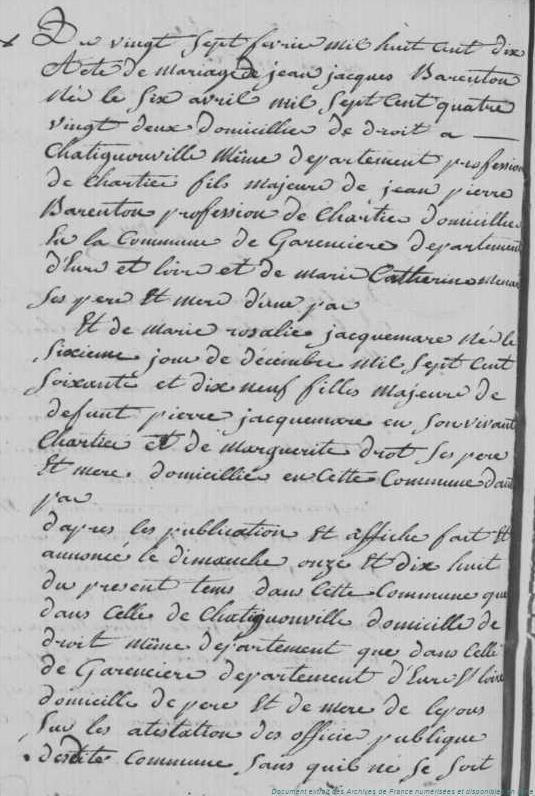 Du vingt sept fevrie mil huit cent dix
Acte de mariage de jean jacques Barenton
Né le six avril mil sept cent quatre
vingt deux domicillie de droit a —
Chatignonville même departement profession
de Chartier fils majeure de jean pierre
Barenton profession de Chartie domicillie
En la Commune de Garenciere departement
d'Eure et loire et de marie Catherine menar
ses pere Et mere d'une par
Et de marie rosalie jacquemare Né le
sixieme jour de décembre mil sept cent
soixante et dix neuf filles majeure de
defunt pierre jacquemare en son vivant
Chartier et de marguerite drot ses pere
Et mere. domicillie en Cette Commune dau
par
d'apres les publication Et affiche fait Et
annonce le dimanche onze Et dix huit
du present tems dans Cette Commune que
dans Celle de Chatignonville domicille de
droit même departement que dans Celle
de Garenciere departement d'Eure Et loire
domicille de pere Et de mere de lepous
sur les atistation des officie publique
desdite Commune sans quil ne se soit
Document extrait des Archives de France numérisées et disponibles en ligne